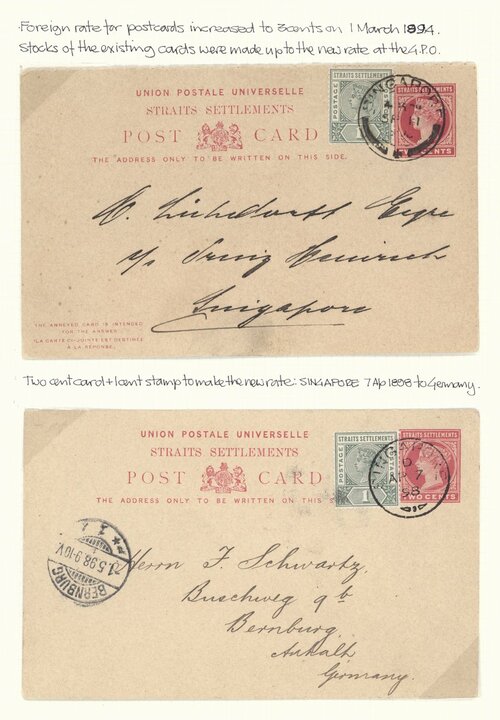 Foreign rate for postcards increased to 3 cents on 1 March 1894.
Stocks of the existing cards were made up to the new rate at the G.P.O.
UNION POSTALE UNIVERSELLE
STRAITS SETTLEMENTS
POST CARD
THE ADDRESS ONLY TO BE WRITTEN ON THIS SIDE.
STRAITS SETTLEMENTS
POSTAGE
STRAITS SETTLEMENTS
CENTS
SINGAPORE
Singapore
THE ANNEXED CARD IS INTENDED
FOR THE ANSWER.
"LA CARTE CI-JOINTE EST DESTINÉE
À LA RÉPONSE.
Two cent card + 1 cent stamp to make the new rate: SINGAPORE 7 Ap 1898 to Germany.
UNION POSTALE UNIVERSELLE
STRAITS SETTLEMENTS
POST CARD
THE ADDRESS ONLY TO BE WRITTEN ON THIS SI
STRAITS SETTLEMENTS
POSTAGE
1
STRAITS SETTLEMENTS
TWO CENTS
SINGAPORE
D
AP 7
98
BERNBURG
1.5.98.9-10V.
Herrn F. Schwartz,
Buschweg 9b
Bernburg
Anhalt
Germany.